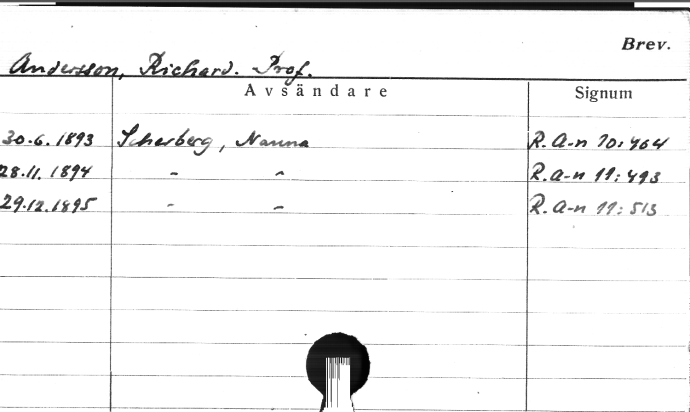 Brev.
Andersson, Richard. Prof.
Avsändare Signum
30.6.1893 Scherberg, Nanna R. A-n 10:464
28.11.1894 - - R. a-n 11:493
29.12.1895 - - R. a-n 11:513